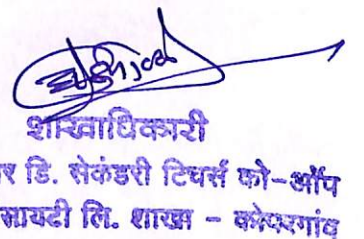 शाखाधिकारी
र डि. सेकंडरी टिचर्स को-ऑप
सायटी लि. शाखा - कोपरगांव